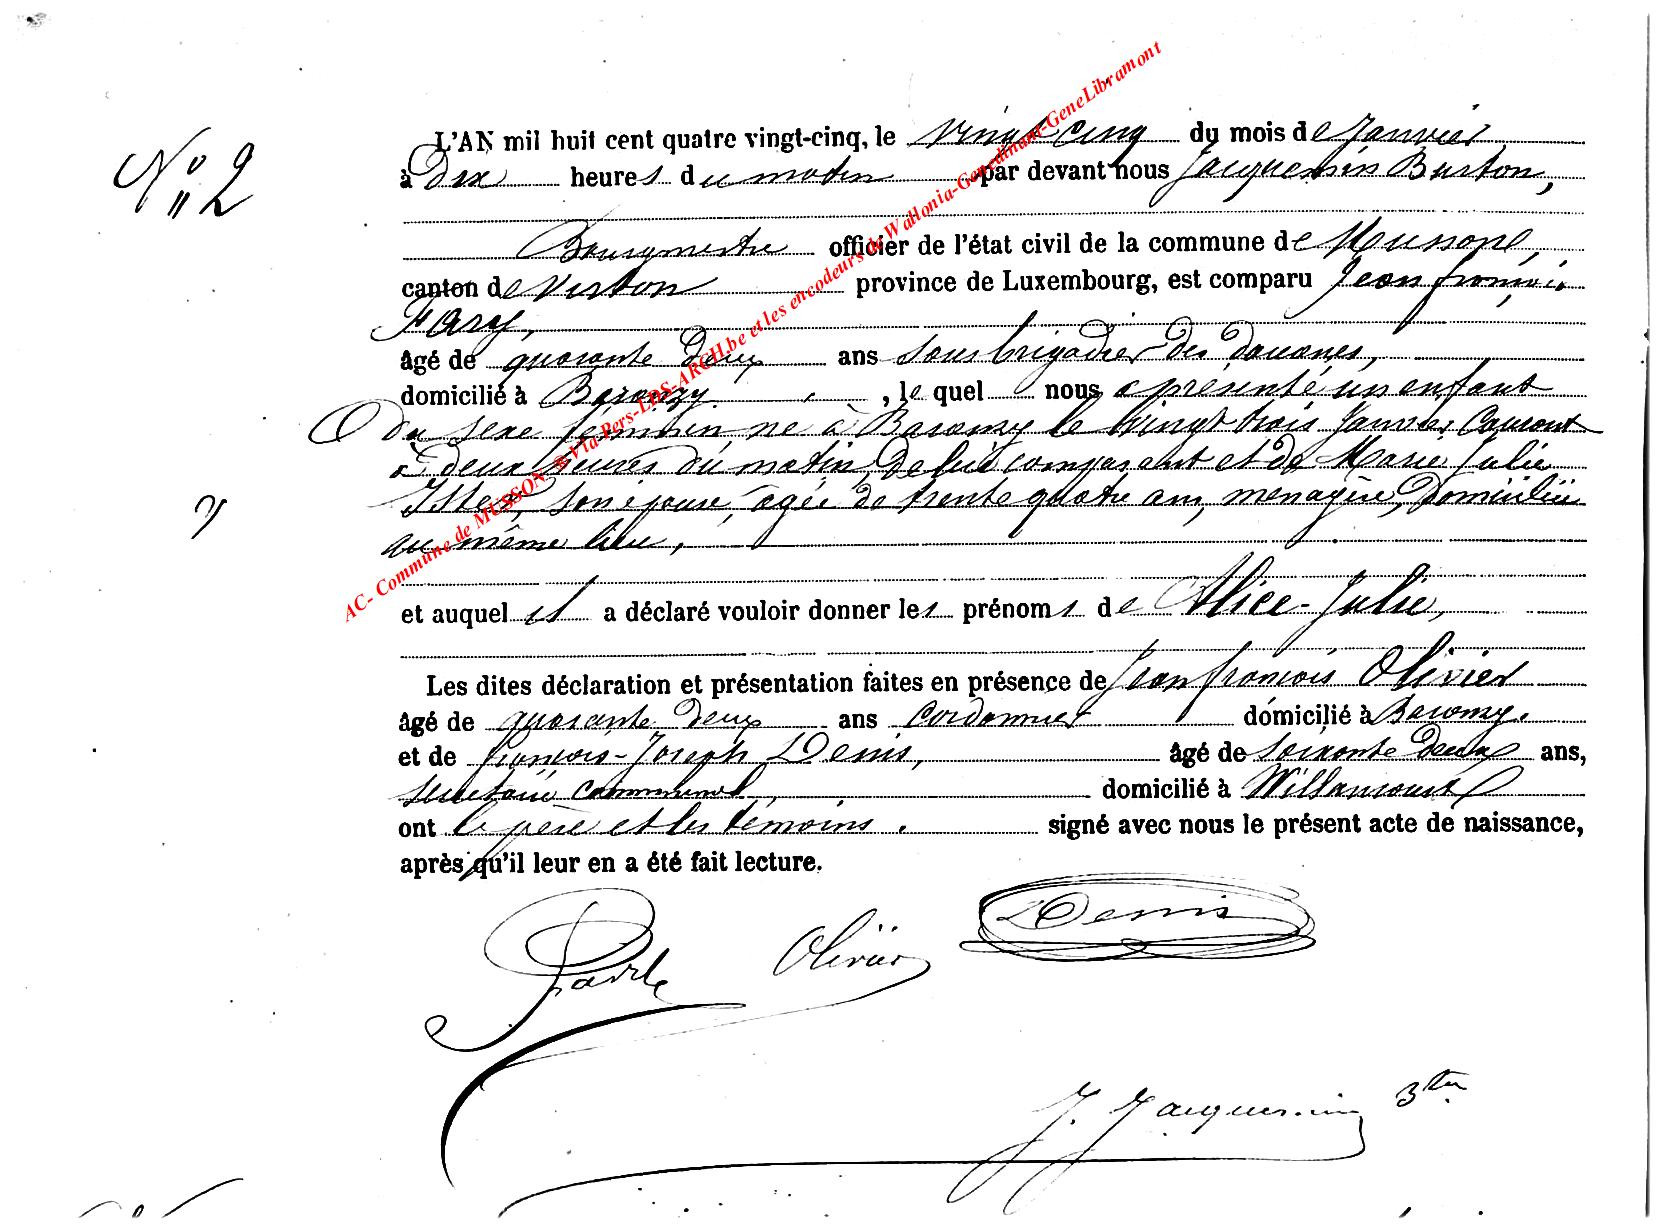 N° 2
L'AN mil huit cent quatre vingt-cinq, le vingt cinq du mois de Janvier
à Dix heures du matin par devant nous Jacquemin Burton,
Bourgmestre officier de l'état civil de la commune de Musson,
canton de Virton province de Luxembourg, est comparu Jean françois
âgé de quarante deux ans sous brigadier des douanes,
domicilié à Baranzy , le quel nous a présenté un enfant
du sexe féminin né à Baranzy le vingt trois Janvier Courant
à deux heures du matin, de lui comparant et de Marie Julie
son épouse, agée de trente quatre ans, ménagère, domiciliée
au même lieu,
et auquel il a déclaré vouloir donner les prénoms de Alice-Julie,
Les dites déclaration et présentation faites en présence de Jean françois Olivier
âgé de quarante deux ans cordonnier domicilié à Baranzy.
et de françois-Joseph Denis, âgé de soixante deux ans,
secrétaire communal, domicilié à Willancourt
ont le père et les témoins. signé avec nous le présent acte de naissance,
après qu'il leur en a été fait lecture.
Olivier Denis
J. Jacquemin
AC- Commune de MUSSON © Via Pers-LDS-ARCH.be et les encodeurs de Wallonia-Genedinant-GeneLibramont